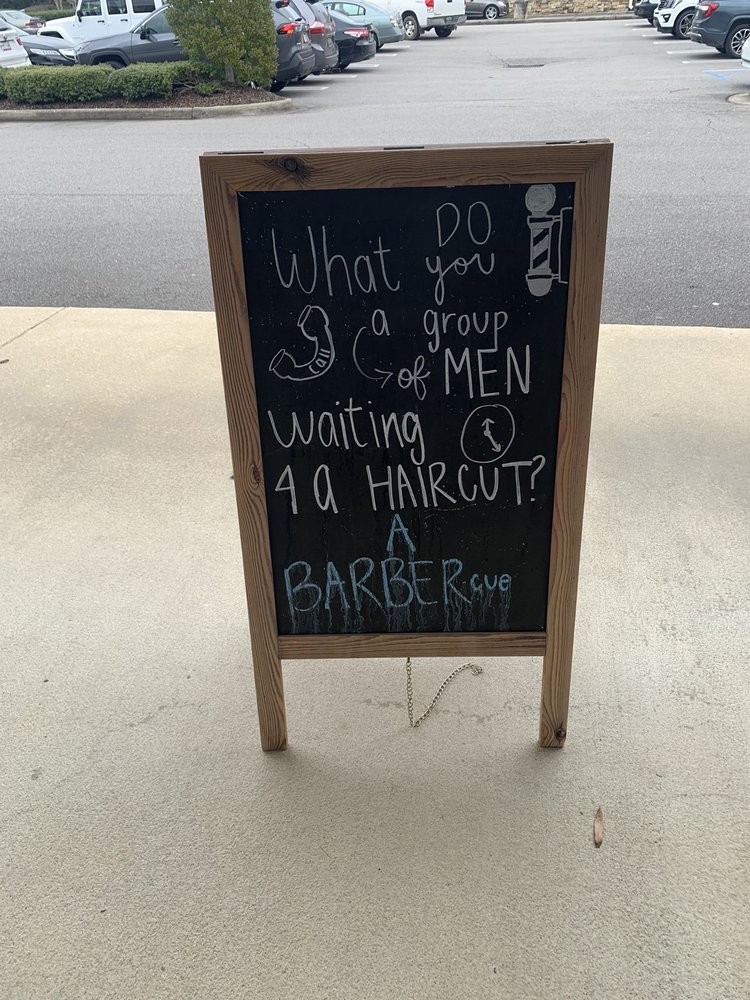 What DO you
call a group
of MEN
waiting
4 a HAIRCUT?
A
BARBERcue